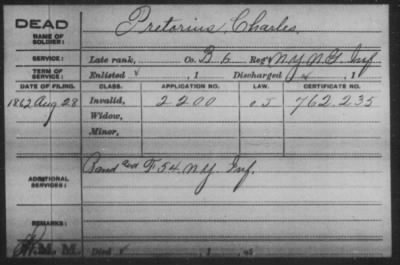 DEAD
NAME OF SOLDIER:
Pretorius, Charles.
SERVICE: Late rank, Co. B 6 Reg't N.Y.N.G. Inf
TERM OF SERVICE: Enlisted ✓, 1 Discharged ✓, 1
DATE OF FILING. CLASS. APPLICATION NO. LAW. CERTIFICATE NO.
1862 Aug. 28 Invalid, 2200 O.L 762.235
Widow,
Minor,
ADDITIONAL SERVICES: Band and F. 54. N.Y. Inf.
REMARKS:
M. M. Died ✓, 1 , at